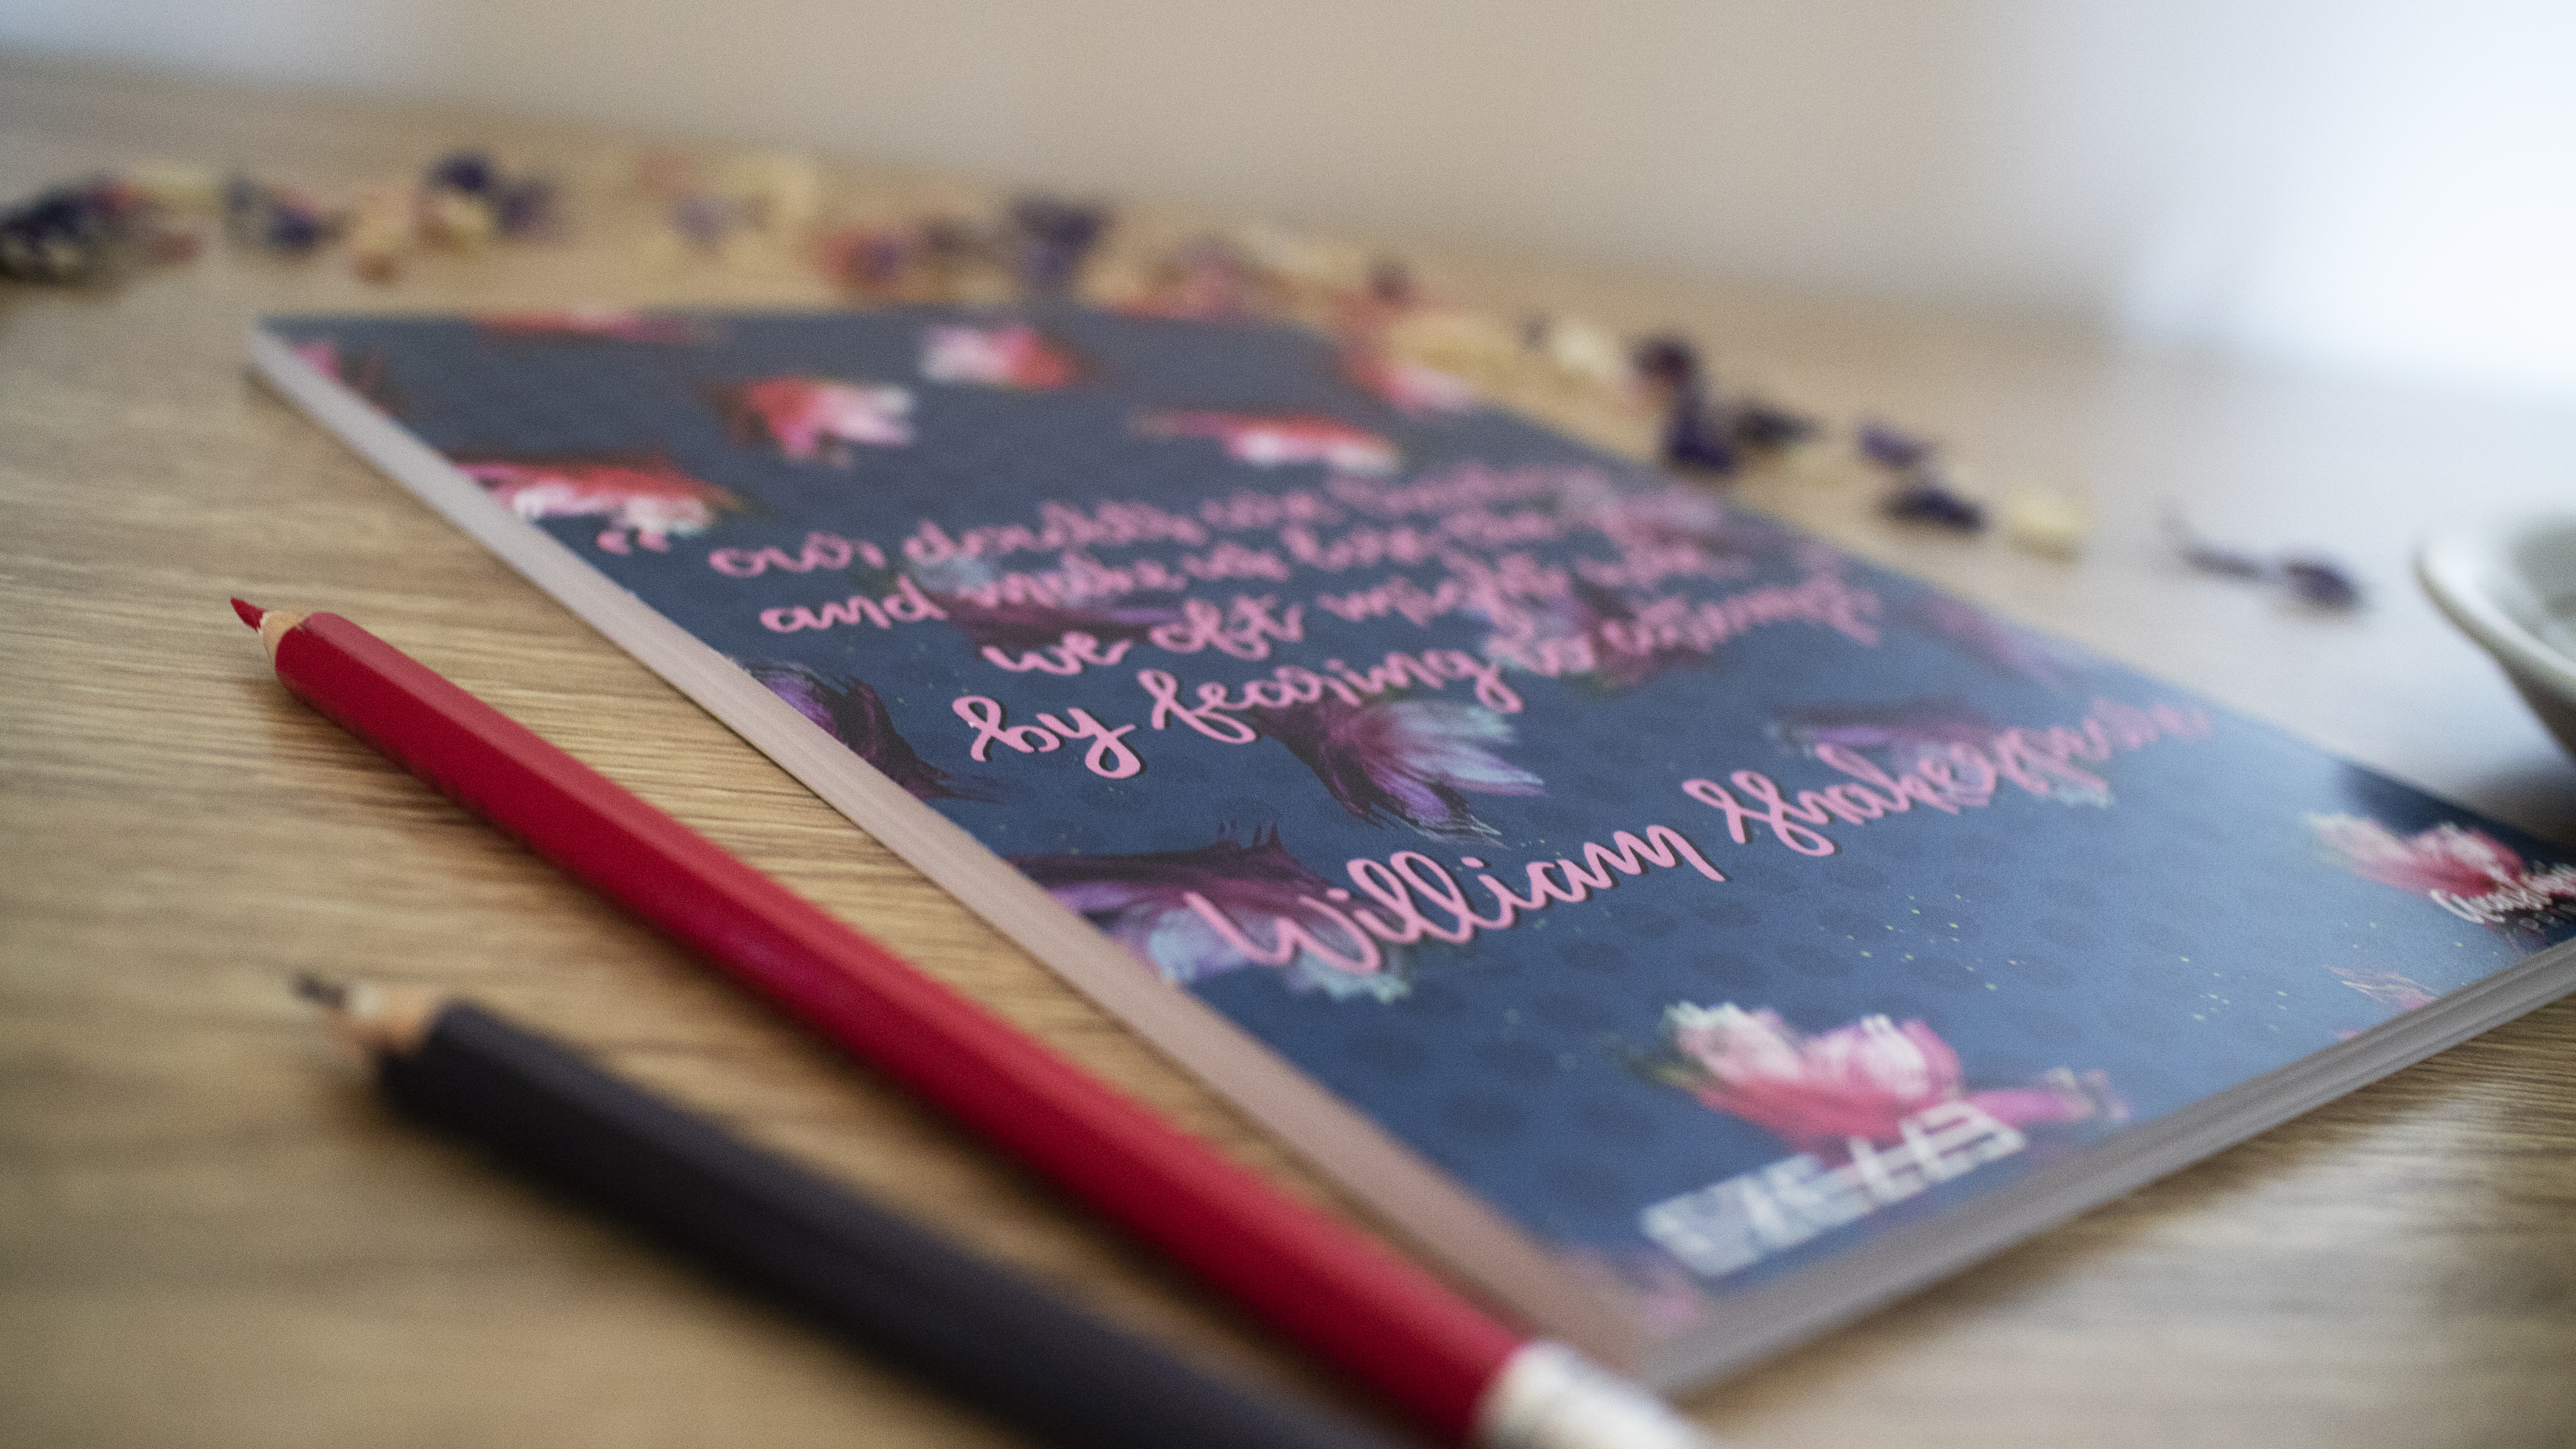 “ our doubts are traitors
and make us lose the
we oft might win
by fearing to attempt
William Shakespeare